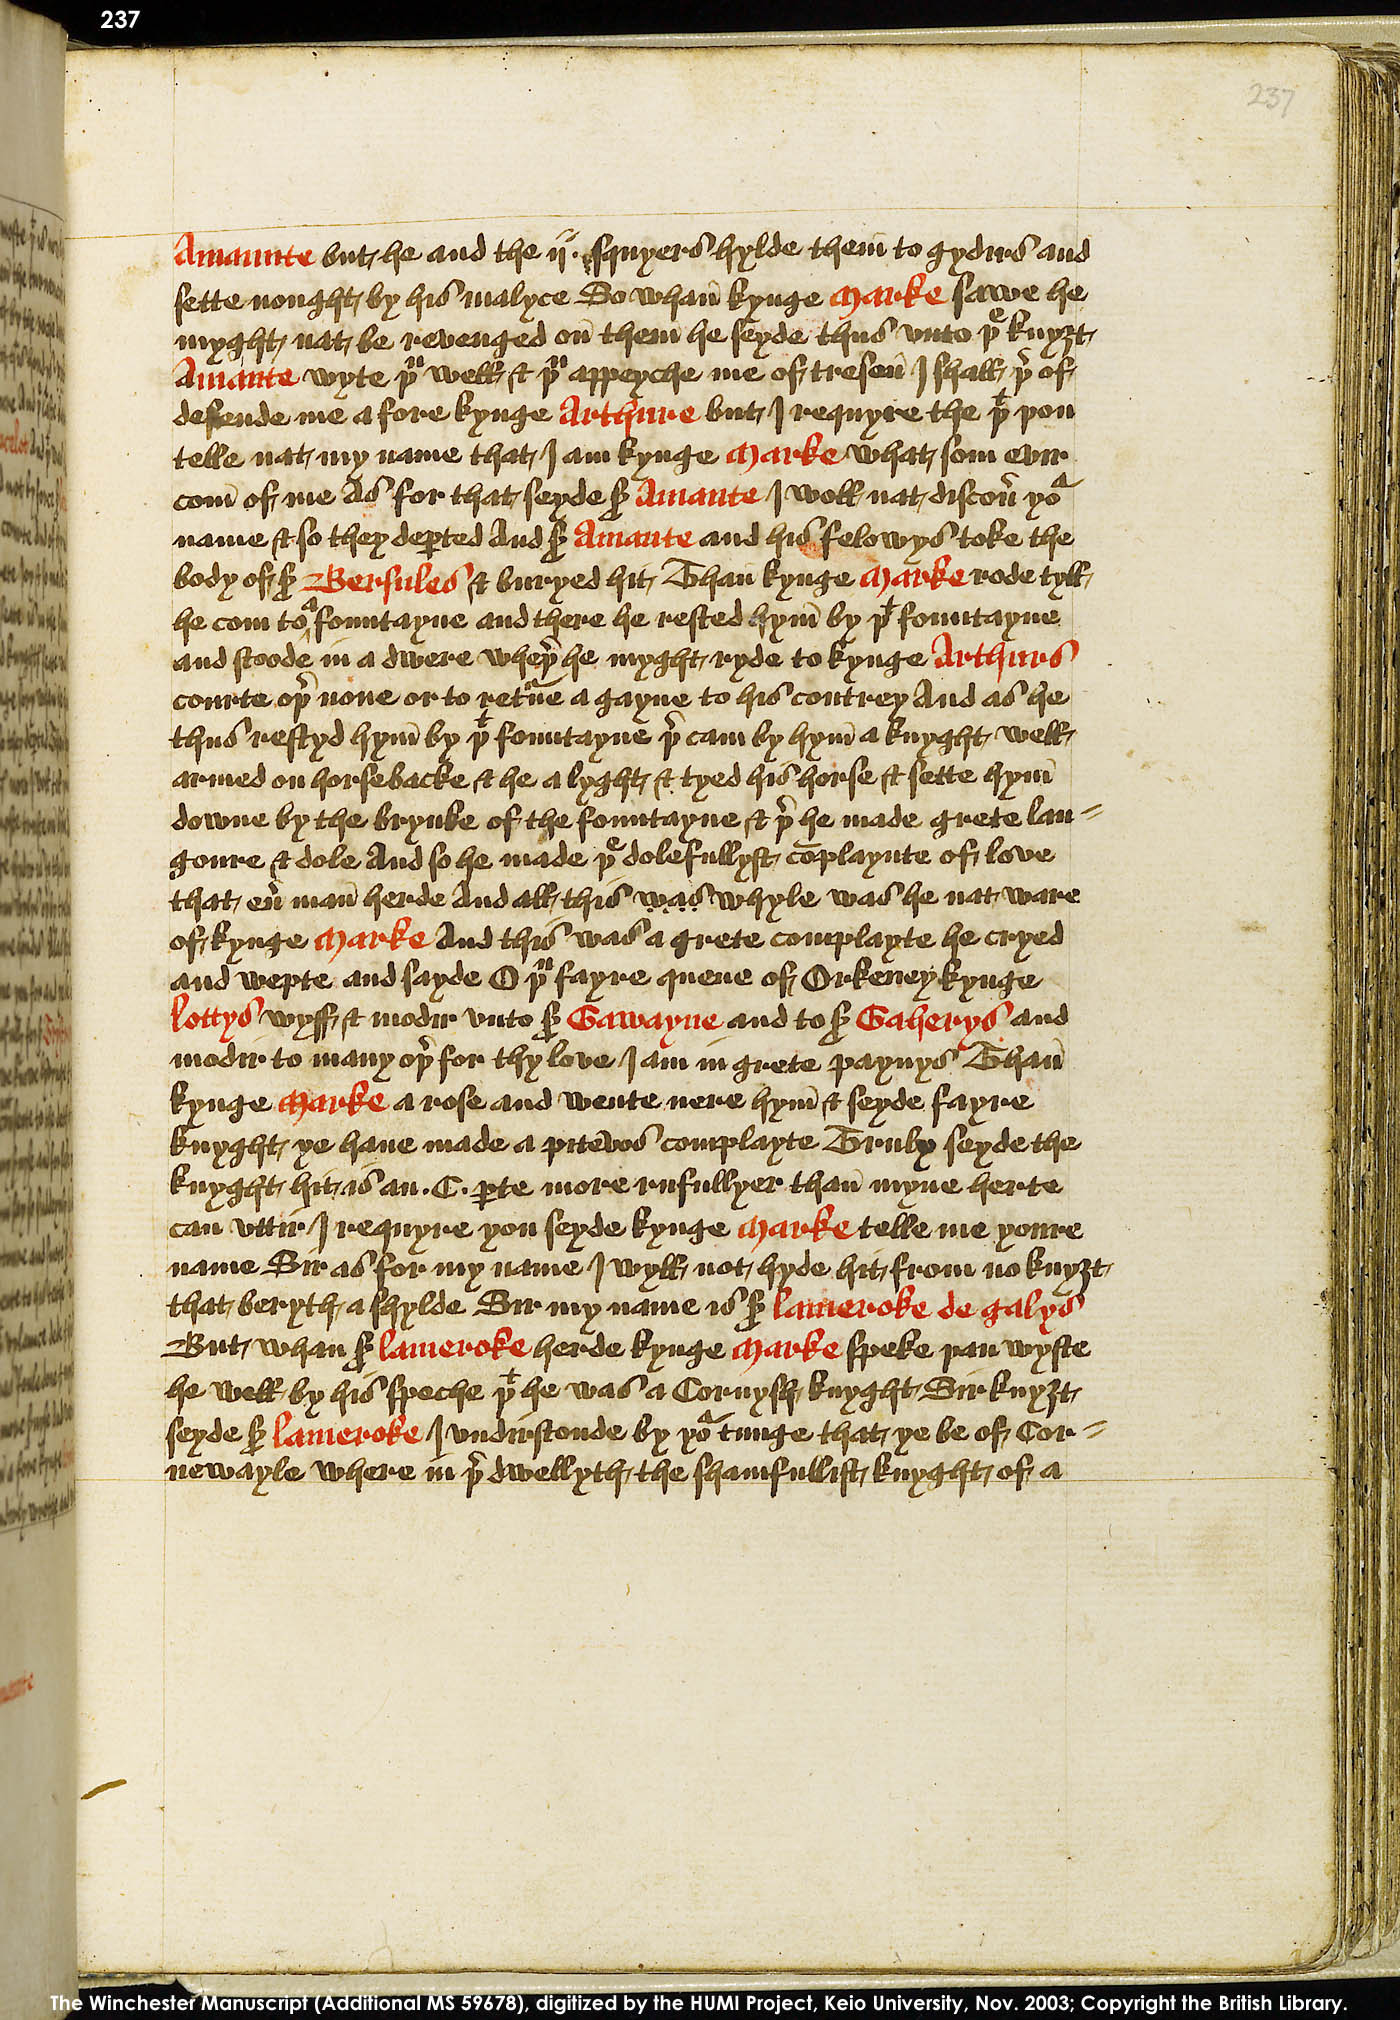 237
237
Amaunte but he and the ij. squyers hylde them̄ to gydirs and
sette nought by his malyce So whan̄ kynge Marke sawe he
myght nat be revenged on̄ them he seyde thus vnto þe knyȝt
Amante wyte þu well & þu appeyche me of tresen̄ I shall þer of
deffende me a fore kynge Arthure but I requyre the þt þou
telle nat my name that I am kynge Marke what som evir
com̄ of me As for that seyde sr Amante I woll nat discou̕ yor
name & so they dep̱ted And sr Amante and his felowys toke the
body of sr Bersules & buryed hit Than̄ kynge Marke rode tyll
he com to a fountayne and there he rested hym̄ by þt fountayne
and stoode in a dwere wheþer he myght ryde to kynge Arthurs
courte oþer none or to retne a gayne to his contrey And as he
thus restyd hym̄ by þt fountayne þer cam by hym̄ a knyght well
armed on horsebacke & he a lyght & tyed his horse & sette hym̄
downe by the brynke of the fountayne & þer he made grete lan=
goure & dole And so he made þe dolefullyst cōplaynte of love
that eu̕ man̄ herde And all this was whyle was he nat ware
of kynge Marke And this was a grete complayte he cryed
and wepte and sayde O þu fayre quene of Orkeney kynge
Lottys wyff & modir vnto sr Gawayne and to sr Gaherys and
modir to many oþer for thy love I am in grete paynys Than̄
kynge Marke a rose and wente nere hym̄ & seyde fayre
knyght ye haue made a pitevos complayte Truly seyde the
knyght hit is an .C. p̱te more rufullyer than̄ myne herte
can vttir I requyre you seyde kynge Marke telle me youre
name Sir as for my name I wyll not hyde hit from no knyȝt
that beryth a shylde Sir my name is sr Lameroke de galys
But whan sr Lameroke herde kynge Marke speke þan wyste
he well by his speche þt he was a Cornyssh knyght Sir knyȝt
seyde sr Lameroke I vndirstonde by yor tunge that ye be of Cor=
newayle where in þer dwellyth the shamfullist knyght of a
The Winchester Manuscript (Additional MS 59678), digitized by the HUMI Project, Keio University, Nov. 2003; Copyright the British Library.